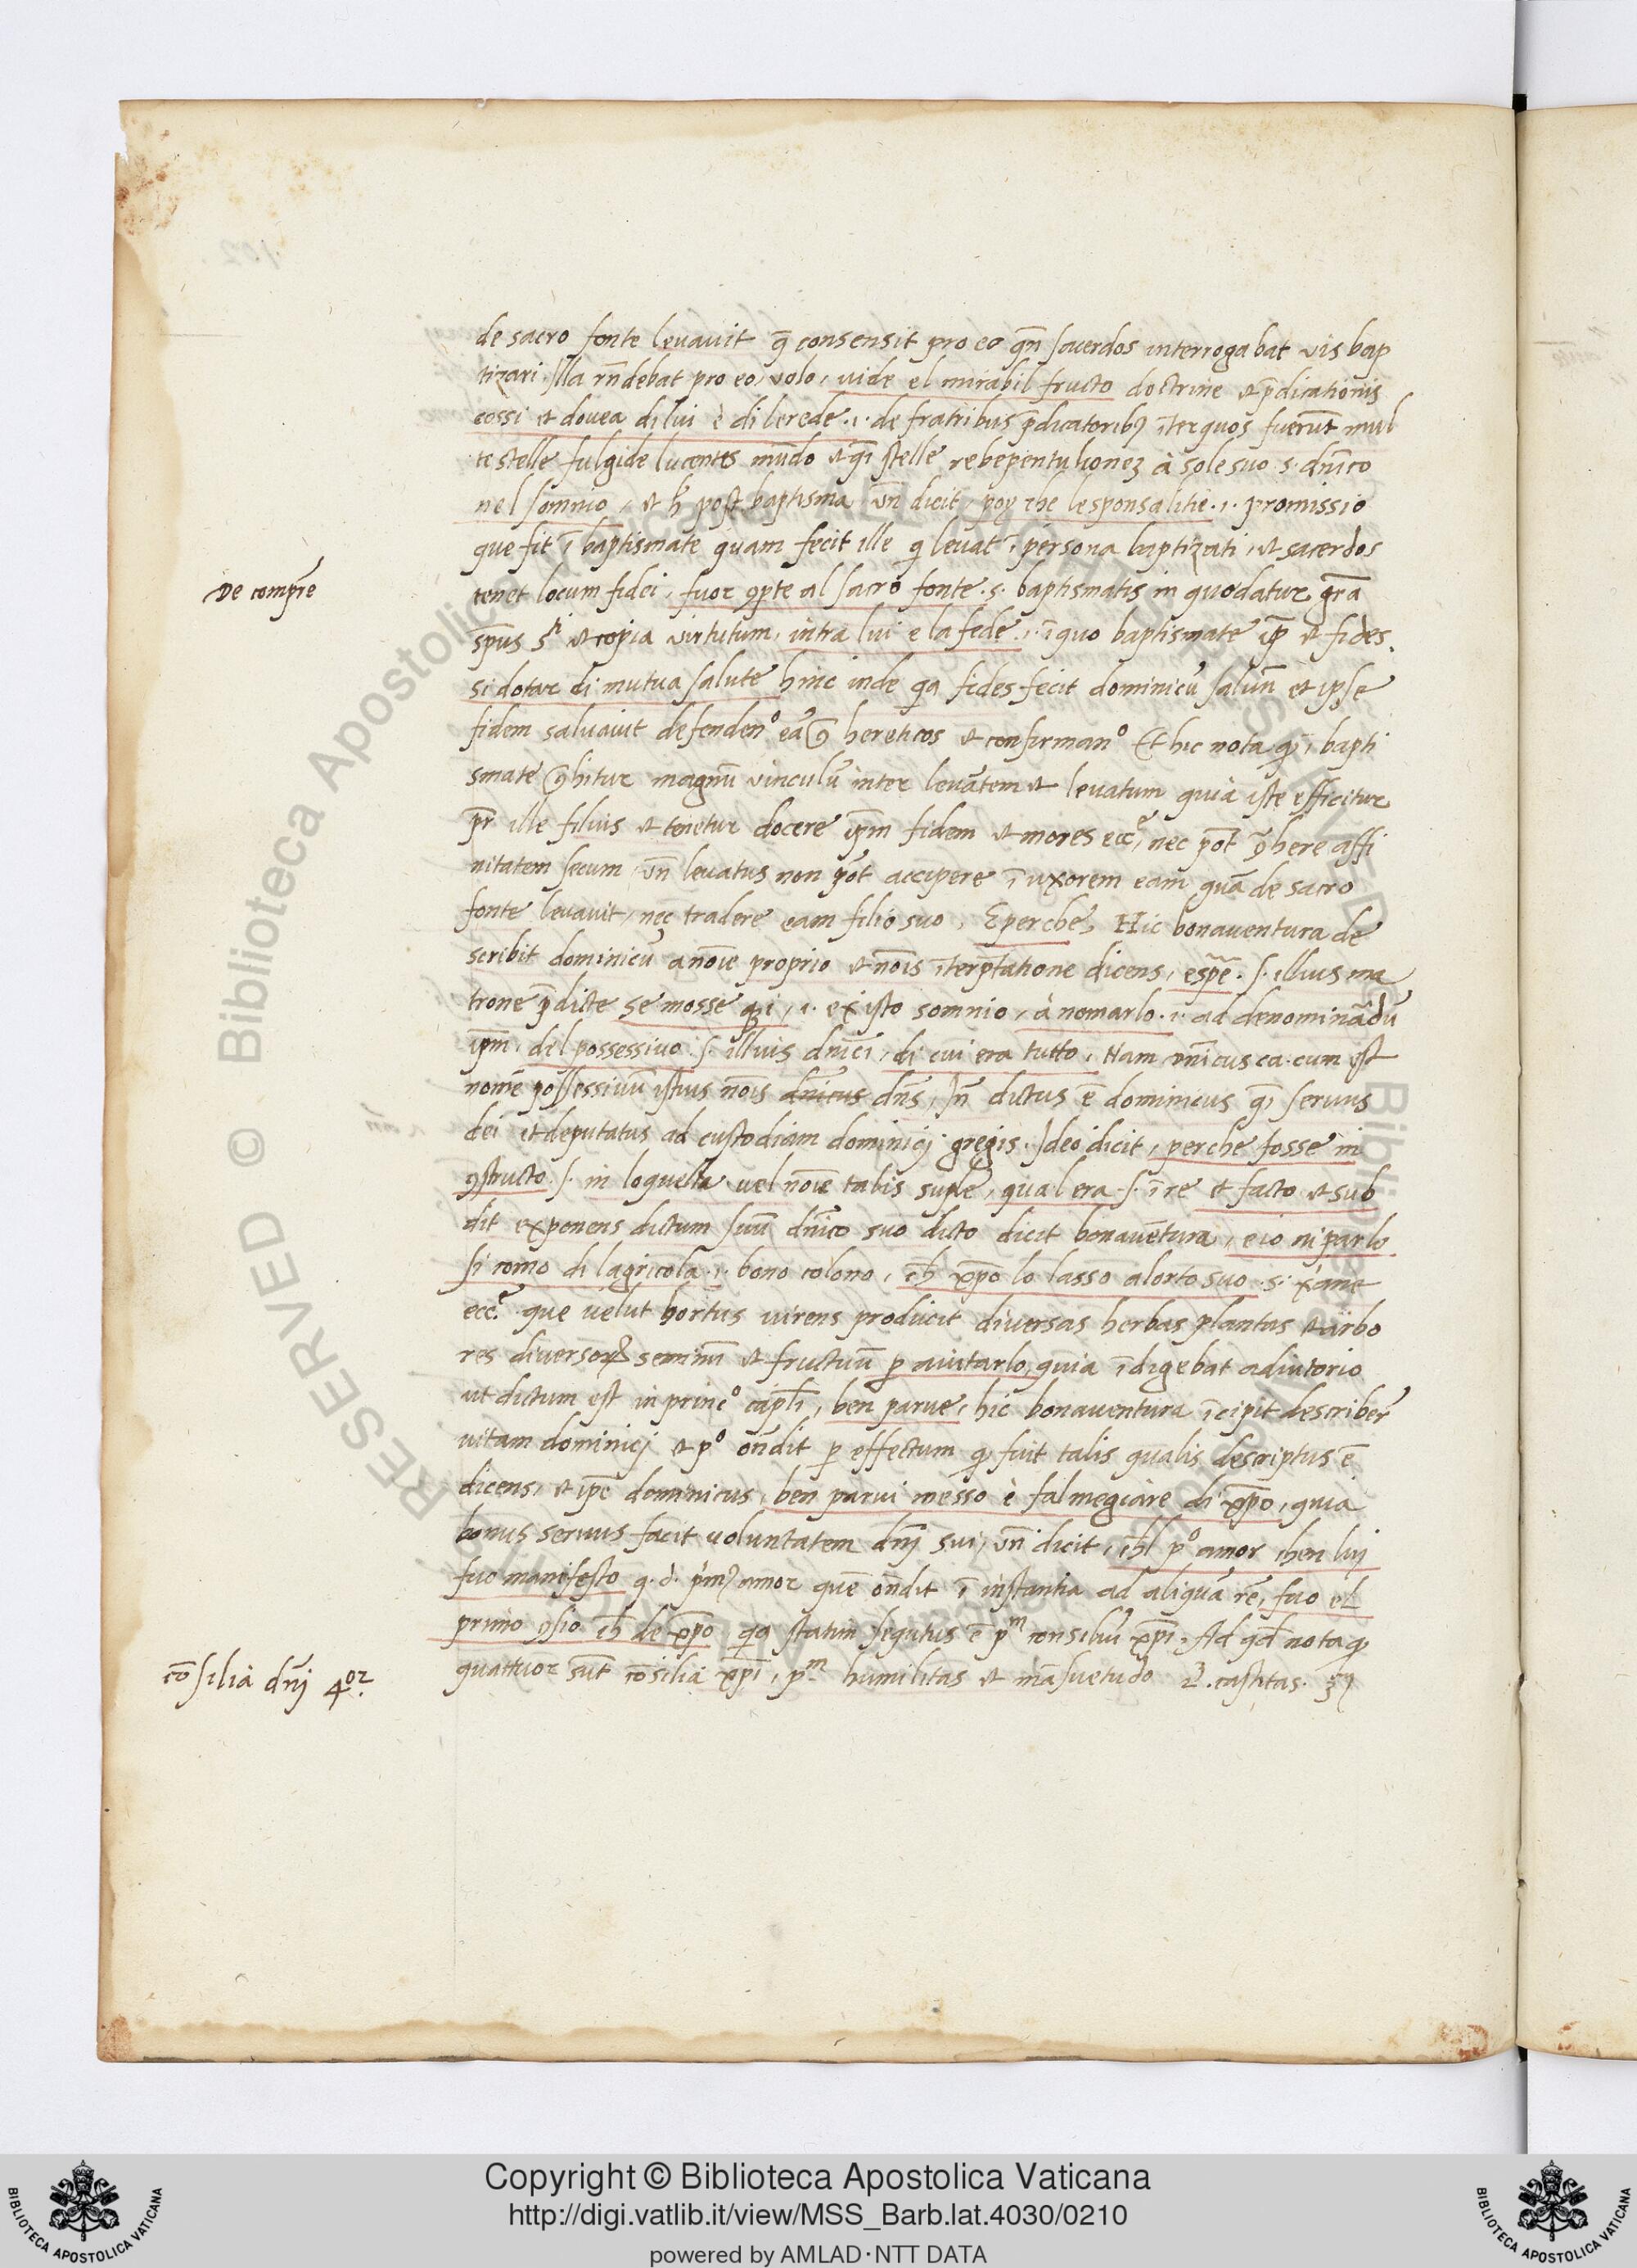 de sacro fonte levavit q̄ consensit pro eo qn̄ sacerdos interrogabat vis bap
tizari Illa rn̄debat pro eo, volo, vide el mirabil fructo doctrine et p̄dicationis
cossi et dovea di lui è di lerede .i. de fratribus p̄dicatoribꝫ īter quos fuerūt mul
te stelle fulgide lucentes mūdo et qī stelle à sole suo .s. dn̄ico
nel somnio, et post baptisma vn̄ dicit, poy che le sponsalitie .i. promissio
que fit ī baptismate quam fecit ille q levat ī persona baptizati, et sacerdos
De compr̄e
tenet locum fidei, fuor ꝯpte al sacro fonte .s. baptismatis in quo datur gr̄a
sp̄us sti et copia virtutum, intra lui e la fede .i. ī quo baptismate ip̄e et fides.
si dotar di mutua salute hinc inde qa fides fecit dominicū salvū et ipse
fidem salvavit defendenº eā ꝯ hereticos et confirmanº Et hic nota qꝫ ī bapti
smate ꝯhitur magnū vinculū inter levātem et levatum quia iste efficitur
pr̄ ille filius et tenetur docere ip̄m fidem et mores ecce, nec pōt ꝯhere affi
nitatem secum vn̄ levatus non pōt accipere ī uxorem eam quā de sacro
fonte levavit, nec tradere eam filio suo, E perche, Hic bonaventura de
scribit dominicū a nōie proprio et nōis īterp̄tatione dicens, esp̄e .s. illius ma
trone p̄dicte se mosse qi, .i. ex isto somnio, à nomarlo .i. ad denominādū
ip̄m, del possessivo .s. illius dn̄ici, di cui era tutto, Nam dn̄icus ca. cum est
nomē possessivū istius nōis dn̄icus dn̄s, In̄ dictus ē dominicus qī servus
dei et deputatus ad custodiam dominicj gregis. Ideo dicit, perche fosse in
ꝯstructo .s. in loquella vel nōie talis suple, qual era .s. ī re et facto et sub
dit exponens dictum suū dn̄ico suo dicto dicit bonavētura, e io ni parlo
si como di lagricola .i. bono colono, ch̄ xp̄o lo lasso alorto suo .s. xr̄ane
ecce. que velut hortus virens producit diversas herbas plantas et arbo
res diversoꝝ seminū et fructuū p aiutarlo, quia īdigebat adiutorio
ut dictum est in princº cap̄li, ben parve, hic bonaventura īcipit describer̄
vitam dominicj et pº on̄dit p effectum qꝫ fuit talis qualis descriptus ē
dicens, et ip̄e dominicus, ben parvi messo è falmegiare di xp̄o, quia
bonus servus facit voluntatem dn̄j sui, vn̄ dicit, ch̄l pº amor chen luj
fuo manifesto q. d. pmꝰ amor quē on̄dit ī instantia ad aliquā rē, fuo el
primo ꝯsio ch̄ de xp̄o qa statim sequtus ē pm consiliū xp̄i, Ad qd nota qꝫ
co̅silia dn̄j 4or.
quattuor sūt cōsilia xp̄i, pm humilitas et māsuetudo 2. castitas. 3ꝫ
Copyright © Biblioteca Apostolica Vaticana
http://digi.vatlib.it/view/MSS_Barb.lat.4030/0210
powered by AMLAD·NTT DATA
BIBLIOTECA APOSTOLICA VATICANA
BIBLIOTECA APOSTOLICA VATICANA